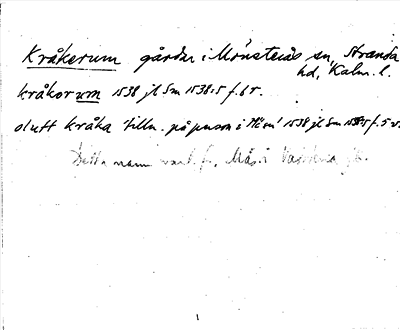 Kråkerum gårdar i Mönsterås sn, Stranda
hd, Kalm. l.
kråkorum 1538 jb Sm 1538:5 f. 6 r.
olutt kråka tilln. på person i 1538 jb Sm 1538:5 f. 5 v.
Detta namn
1